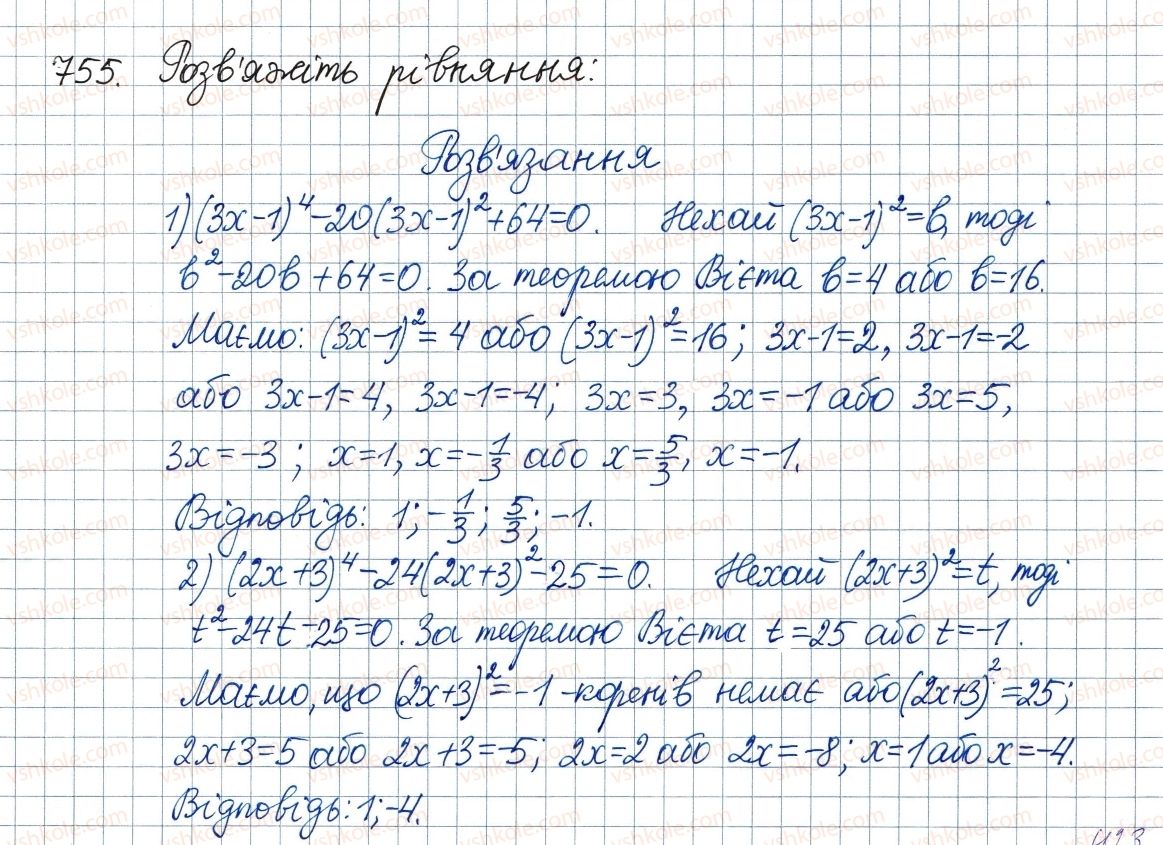 755. Розв'яжіть рівняння:
Розв'язання
1) (3x-1)⁴-20(3x-1)²+64=0. Нехай (3x-1)²=b, тоді
b²-20b+64=0. За теоремою Вієта b=4 або b=16.
Маємо: (3x-1)²=4 або (3x-1)²=16; 3x-1=2, 3x-1=-2
або 3x-1=4, 3x-1=-4; 3x=3, 3x=-1 або 3x=5,
3x=-3; x=1, x=-1/3 або x=5/3, x=-1.
Відповідь: 1; -1/3; 5/3; -1.
2) (2x+3)⁴-24(2x+3)²-25=0. Нехай (2x+3)²=t, тоді
t²-24t-25=0. За теоремою Вієта t=25 або t=-1.
Маємо, що (2x+3)²=-1 -коренів немає або (2x+3)²=25;
2x+3=5 або 2x+3=-5; 2x=2 або 2x=-8; x=1 або x=-4.
Відповідь: 1; -4.